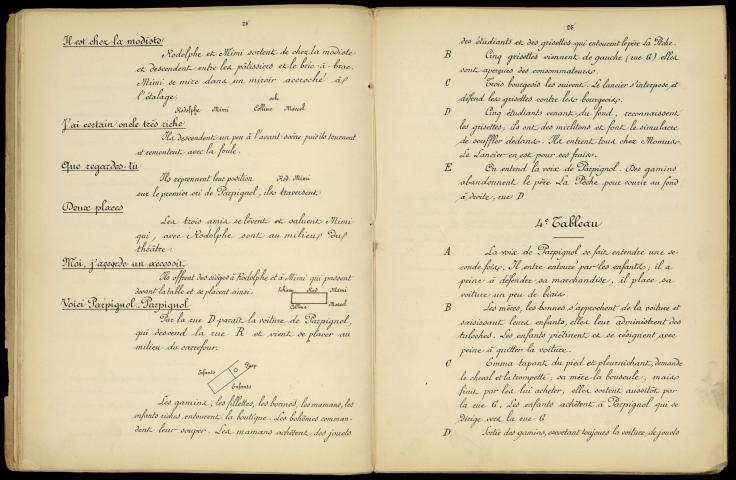 Il est chez la modiste
Rodolphe et Mimi sortent de chez la modiste
et descendent entre les pâtissiers et le bric-à-brac.
Mimi se mire dans un miroir accroché à
l'étalage.
sch.
Rodolphe Mimi Colline Marcel
J'ai certain oncle très riche
Ils descendent un peu à l'avant-scène puis ils tournent
et remontent avec la foule.
Que regardes-tu
Ils reprennent leur position Rod. Mimi
sur le premier cri de Parpignol, ils traversent
Deux places
Les trois amis se lèvent et saluent Mimi
qui, avec Rodolphe sont au milieu du
théâtre.
Moi, j'accorde un accessit
Ils offrent des sièges à Rodolphe et à Mimi qui passent
devant la table et se placent ainsi: Schau. Rod Mimi
Colline Marcel
Voici Parpignol. Parpignol
Par la rue D paraît la voiture de Parpignol,
qui descend la rue R et vient se placer au
milieu du carrefour.
Enfants Parp.
Enfants
Les gamins, les fillettes, les bonnes, les mamans, les
enfants riches entourent la boutique. Les bohêmes comman-
dent leur souper. Les mamans achètent des jouets
26
des étudiants et des grisettes qui entourent le père La Pêche.
B Cinq grisettes viennent de gauche (rue G) elles
sont aperçues des consommateurs.
C Trois bourgeois les suivent. Le lancier s'interpose, et
défend les grisettes contre les bourgeois.
D Cinq étudiants venant du fond, reconnaissent
les grisettes; ils ont des mirlitons et font le simulacre
de souffler dedans. Ils entrent tous chez Momus.
Le Lancier en est pour ses frais.
E On entend la voix de Parpignol. Des gamins
abandonnent le père La Pêche pour courir au fond
à droite, rue D
4e Tableau
A La voix de Parpignol se fait entendre une se-
conde fois. Il entre entouré par les enfants; il a
peine à défendre sa marchandise, il place sa
voiture un peu de biais.
B Les mères, les bonnes s'approchent de la voiture et
saisissant leurs enfants, elles leur administrent des
taloches. Les enfants piétinent et se résignent avec
peine à quitter la voiture.
C Emma tapant du pied et pleurnichant, demande
le cheval et la trompette, sa mère la bouscule, mais
finit par les lui acheter, elles sortent aussitôt par
la rue G. Les enfants achètent à Parpignol qui se
dirige vers la rue G
D Sortie des gamins, escortant toujours la voiture de jouets